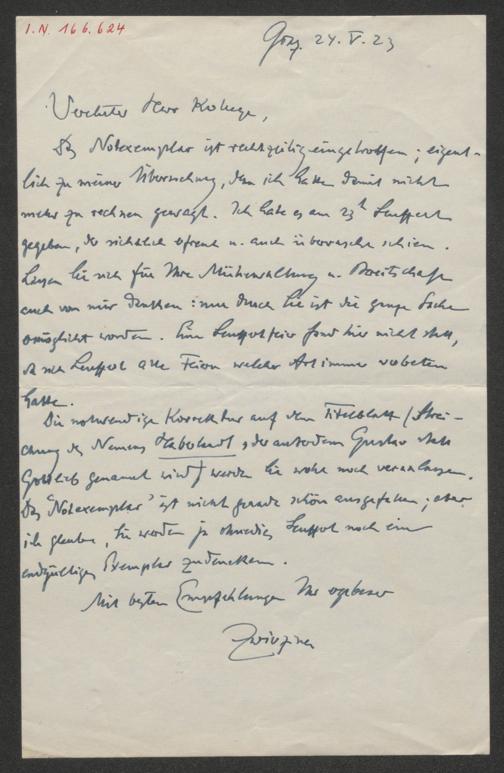 I.N. 166.624
Graz, 24. V. 23
Verehrter Herr Kollege,
Das Notexemplar ist rechtzeitig eingetroffen; eigent-
lich zu meiner Überraschung, denn ich hatte damit nicht
mehr zu rechnen gewagt. Ich habe es am 23t Seuffert
gegeben, der sichtlich erfreut u. auch überrascht schien.
Lassen Sie sich für Ihre Mühewaltung u. Bereitschaft
auch von mir danken: nur durch Sie ist die ganze Sache
ermöglicht worden. Eine Seuffertfeier fand hier nicht statt,
da sich Seuffert alle Feiern welcher Art immer verbeten
hatte.
Die notwendige Korrektur auf dem Titelblatt (Strei-
chung des Namens Haberlandt, der außerdem Gustav statt
Gottlieb genannt wird) werden Sie wohl noch veranlassen.
Das 'Notexemplar' ist nicht gerade schön ausgefallen; aber
ich glaube, Sie werden ja ohnedies Seuffert noch ein
endgültiges Exemplar zudenken.
Mit besten Empfehlungen Ihr ergebener
Zwierzina